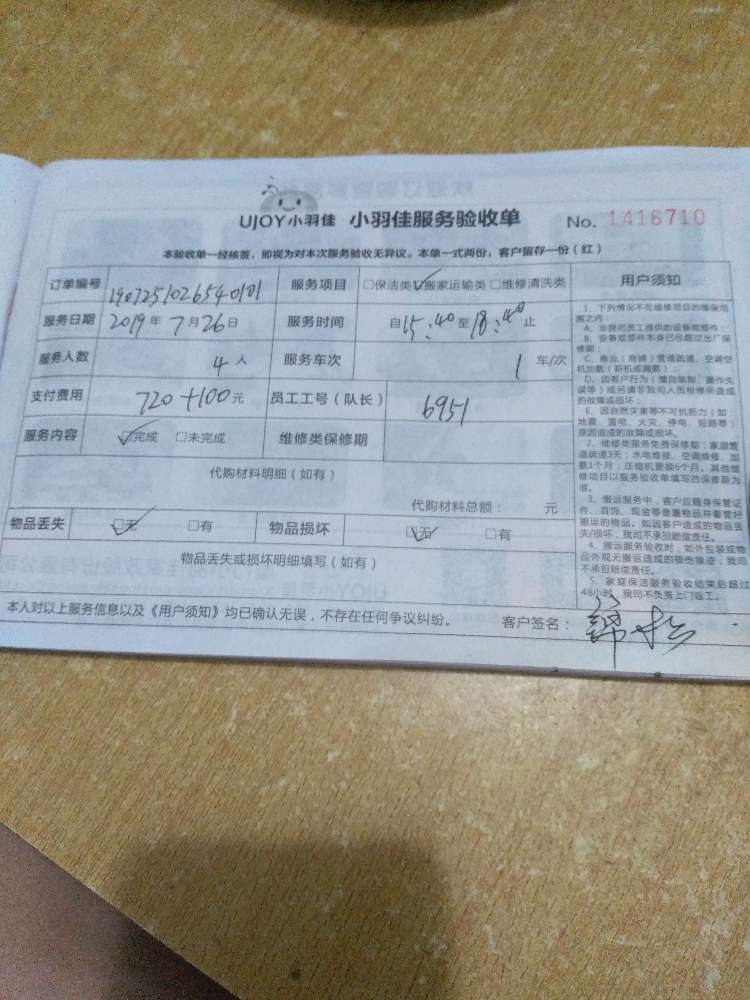 UJOY小羽佳 小羽佳服务验收单 No. 1416710
本验收单一经核签，即视为对本次服务验收无异议。本单一式两份，客户留存一份（红）
订单编号 1907251026540101 服务项目 □保洁类☑搬家运输类□维修清洗类 用户须知
服务日期 2019年7月26日 服务时间 自15:40至18:40止
服务人数 4人 服务车次 1车/次
支付费用 720+100元 员工工号（队长） 6951
服务内容 ☑完成 □未完成 维修类保修期
代购材料明细（如有）
代购材料总额： 元
物品丢失 ☑无 □有 物品损坏 ☑无 □有
物品丢失或损坏明细填写（如有）
1、下列情况不在维修项目的售保范
围之内
A、非我司员工提供的设备或部件；
B、设备或部件本身已经超过出厂保
修期；
C、商业（商铺）管道疏通、空调空
机加氟（新机或漏氟）；
D、因用户行为（擅自装卸、操作失
误等）或另请非我司人员检修所造成
的故障或损坏；
E、因自然灾害等不可抗拒力（如：
地震、雷电、火灾、停电、短路等）
原因造成的故障或损坏。
2、维修类服务免费保修期：家庭管
道疏通3天；水电维修、空调维修、加
氟1个月；压缩机更换6个月，其他维
修项目以服务验收单填写的保修期为
准。
3、搬运服务中，客户应随身保管证
件、首饰、现金等贵重物品并看管好
搬运的物品，如因客户造成的物品丢
失/损坏，我司不承担赔偿责任。
4、搬运服务验收时，如外包装或物
品外观无搬运造成的损伤痕迹，我司
不承担赔偿责任。
5、家庭保洁服务验收结束后超过
48小时，我司不负责上门返工。
本人对以上服务信息以及《用户须知》均已确认无误，不存在任何争议纠纷。 客户签名：